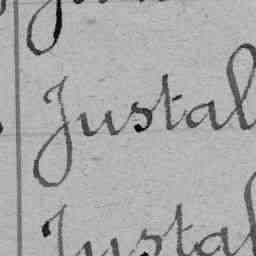 Justal
Justal